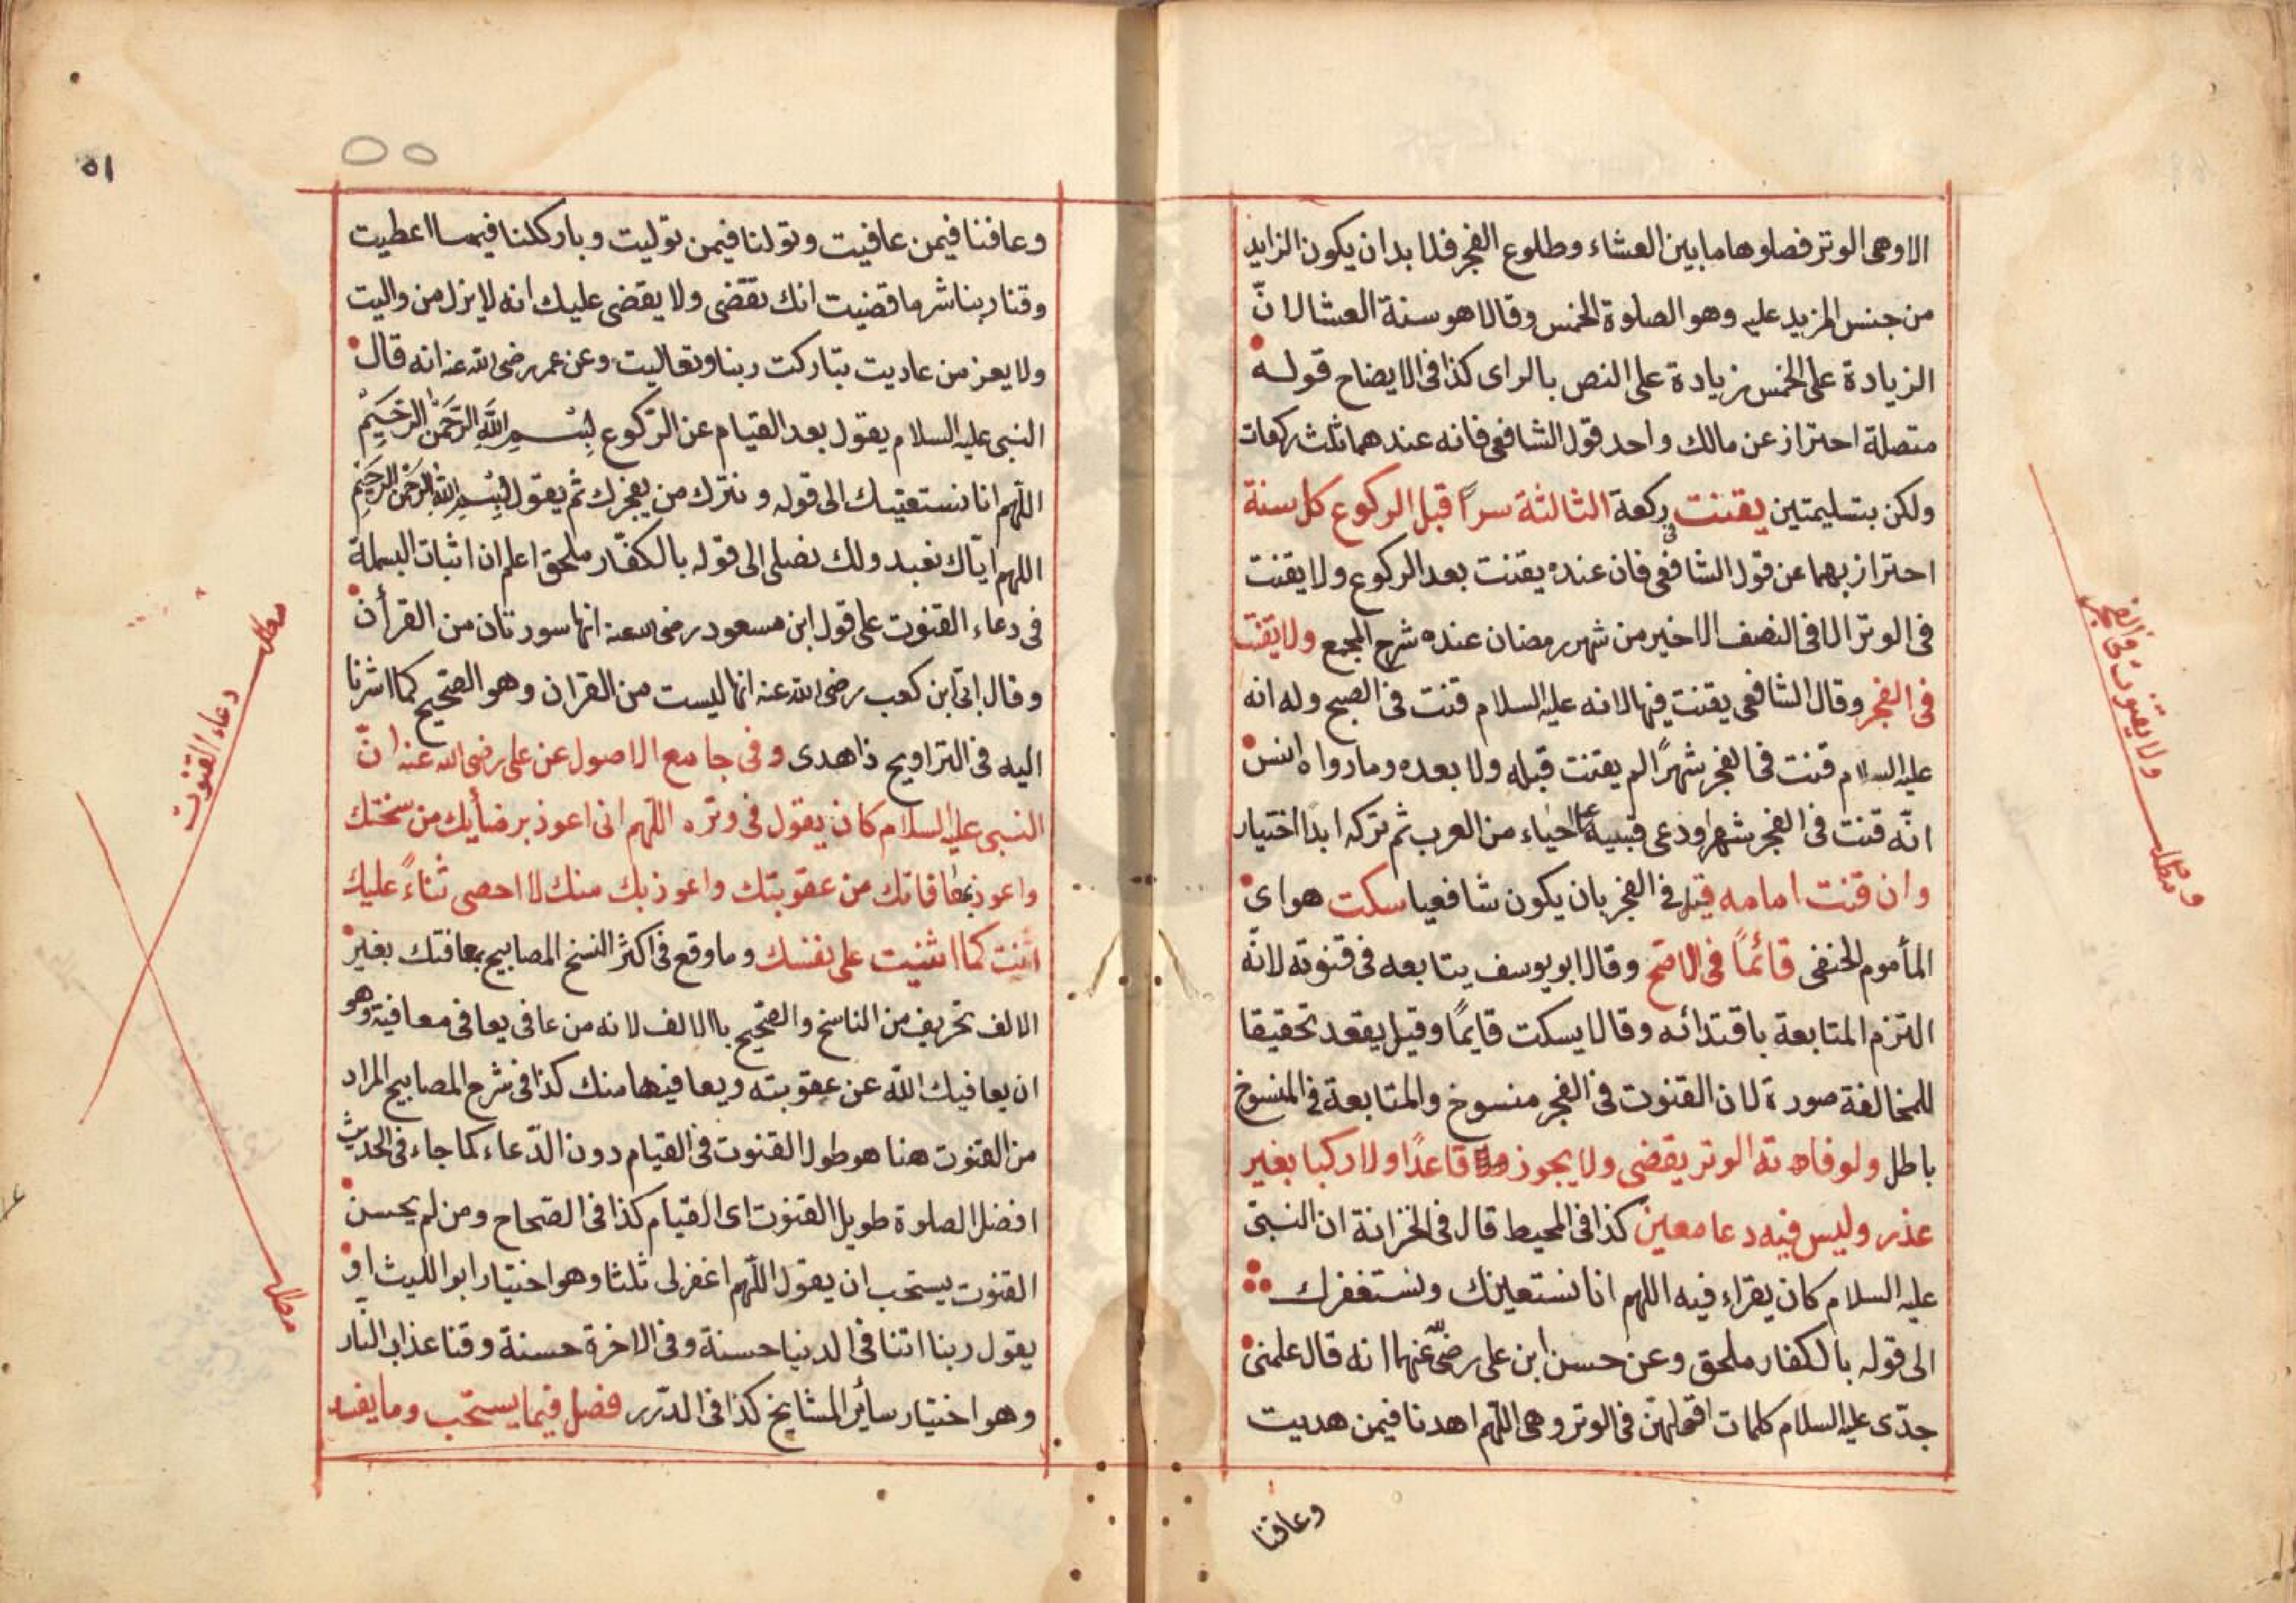 الا وهى الوتر فصلوها ما بين العشاء وطلوع الفجر فلا بد ان يكون الزايد
من جنس المزيد عليه وهو الصلوة الخمس وقالا هو سنة العشا لانّ
الزيادة على الخمس زيادة على النص بالراى كذا فى الايضاح قوله
متصلة احتراز عن مالك واحد قول الشافعى فانه عندهما ثلث ركعات
ولكن بتسليمتين يقنت فى ركعة الثالثة سراً قبل الركوع كل سنة
احتراز بهما عن قول الشافعى فان عنده يقنت بعد الركوع ولا يقنت
فى الوتر الا فى النصف الاخير من شهر رمضان عنده شرح المجمع ولا يقنت
فى الفجر وقال الشافعى يقنت فيها لانه عليه السلام قنت فى الصبح وله انه
عليه السلام قنت فى الفجر شهراً لم يقنت قبله ولا بعده وما رواه انس
انّه قنت فى الفجر شهرا ودعى فيه على احياء من العرب ثم تركه ابدا اختيار
وان قنت امامه فى الفجر بان يكون شافعيا سكت هو اى
المأموم الحنفى قائماً فى الاصح وقال ابو يوسف يتابعه فى قنوته لانّه
التزم المتابعة باقتدائه وقالا يسكت قايماً وقيل يقعد تحقيقا
للمخالفة صورة لان القنوت فى الفجر منسوخ والمتابعة فى المنسوخ
باطل ولو فاتته الوتر يقضى ولا يجوز قاعداً ولا راكبا بغير
عذر وليس فيه دعا معين كذا فى المحيط قال فى الخزانة ان النبى
عليه السلام كان يقراء فيه اللهم انا نستعينك ونستغفرك
الى قوله بالكفار ملحق وعن حسن ابن على رضى الله عنهما انه قال علمنى
جدّى عليه السلام كلمات اقولهن فى الوتر وهى اللّهم اهدنا فيمن هديت
وعافنا
ولا يقنوت فى الفجر
مطلب
٥١
وعافنا فيمن عافيت وتولنا فيمن توليت وبارك لنا فيما اعطيت
وقنا ربنا شر ما قضيت انك تقضى ولا يقضى عليك انه لا يزل من واليت
ولا يعز من عاديت تباركت ربنا وتعاليت وعن عمر رضى الله عنه انه قال
النبى عليه السلام يقول بعد القيام عن الركوع بِسْمِ اللّهِ الرَّحمَنِ الرَّحِيمِ
اللّهم انا نستعينك الى قوله ونترك من يفجرك ثم يقول بِسْمِ اللّهِ الرَّحمَنِ الرَّحِيمِ
اللهم ايّاك نعبد ولك نصلى الى قوله بالكفّار ملحق اعلم ان اثبات البسملة
فى دعاء القنوت على قول ابن مسعود رضى الله عنه انها سورتان من القرأن
وقال ابىّ ابن كعب رضى الله عنه انها ليست من القران وهو الصّحيح كما اشرنا
اليه فى التراويح ذاهدى وفى جامع الاصول عن على رضى الله عنه انّ
النبى عليه السلام كان يقول فى وتره اللّهم انى اعوذ برضأيك من سختك
واعوذ بمعافاتك من عقوبتك واعوذ بك منك لا احصى ثناءً عليك
انت كما اثنيت على نفسك وما وقع فى اكثر النسخ المصابيح بمعافتك بغير
الالف تحريف من الناسخ والصّحيح باالالف لانه من عافى يعافى معافية وهو
ان يعافيك اللّه عن عقوبته ويعافيها منك كذا فى شرح المصابيح المراد
من القنوت هنا هو طول القنوت فى القيام دون الدّعاء كما جاء فى الحديث
افضل الصلوة طويل القنوت اى القيام كذا فى الصّحاح ومن لم يحسن
القنوت يستحب ان يقول اللّهم اغفر لى ثلثا وهو اختيار ابو الليث او
يقول ربنا اتنا فى الدنيا حسنة وفى الاخرة حسنة وقنا عذاب النّار
وهو اختيار سأير المشايخ كذا فى الدّرر فصل فيما يستحب وما يفسد
مطلب
دعاء القنوت
مطلب